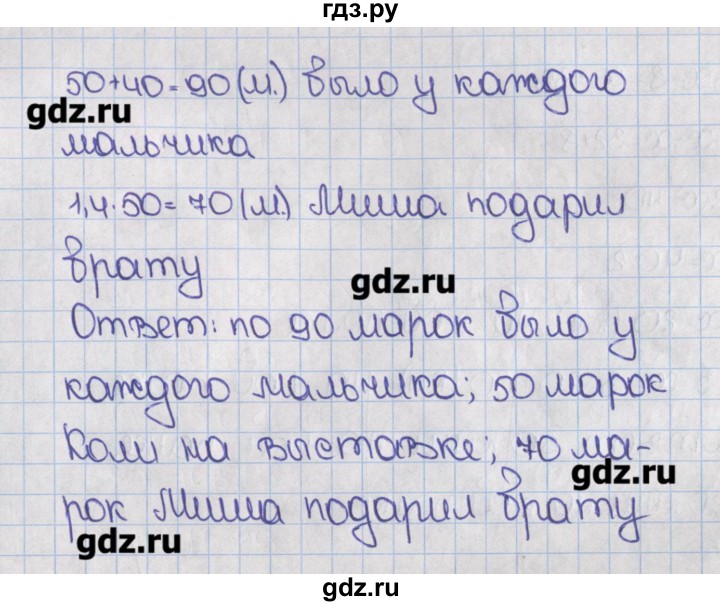 гдз.ру
50+40=90(м.) было у каждого
gdz.ru
мальчика
1,4·50=70(м.) Миша подарил
брату
gdz.ru
Ответ: по 90 марок было у
каждого мальчика; 50 марок
Коли на выставке; 70 ма-
gdz.ru
рок Миша подарил брату
gdz.ru
gdz.ru